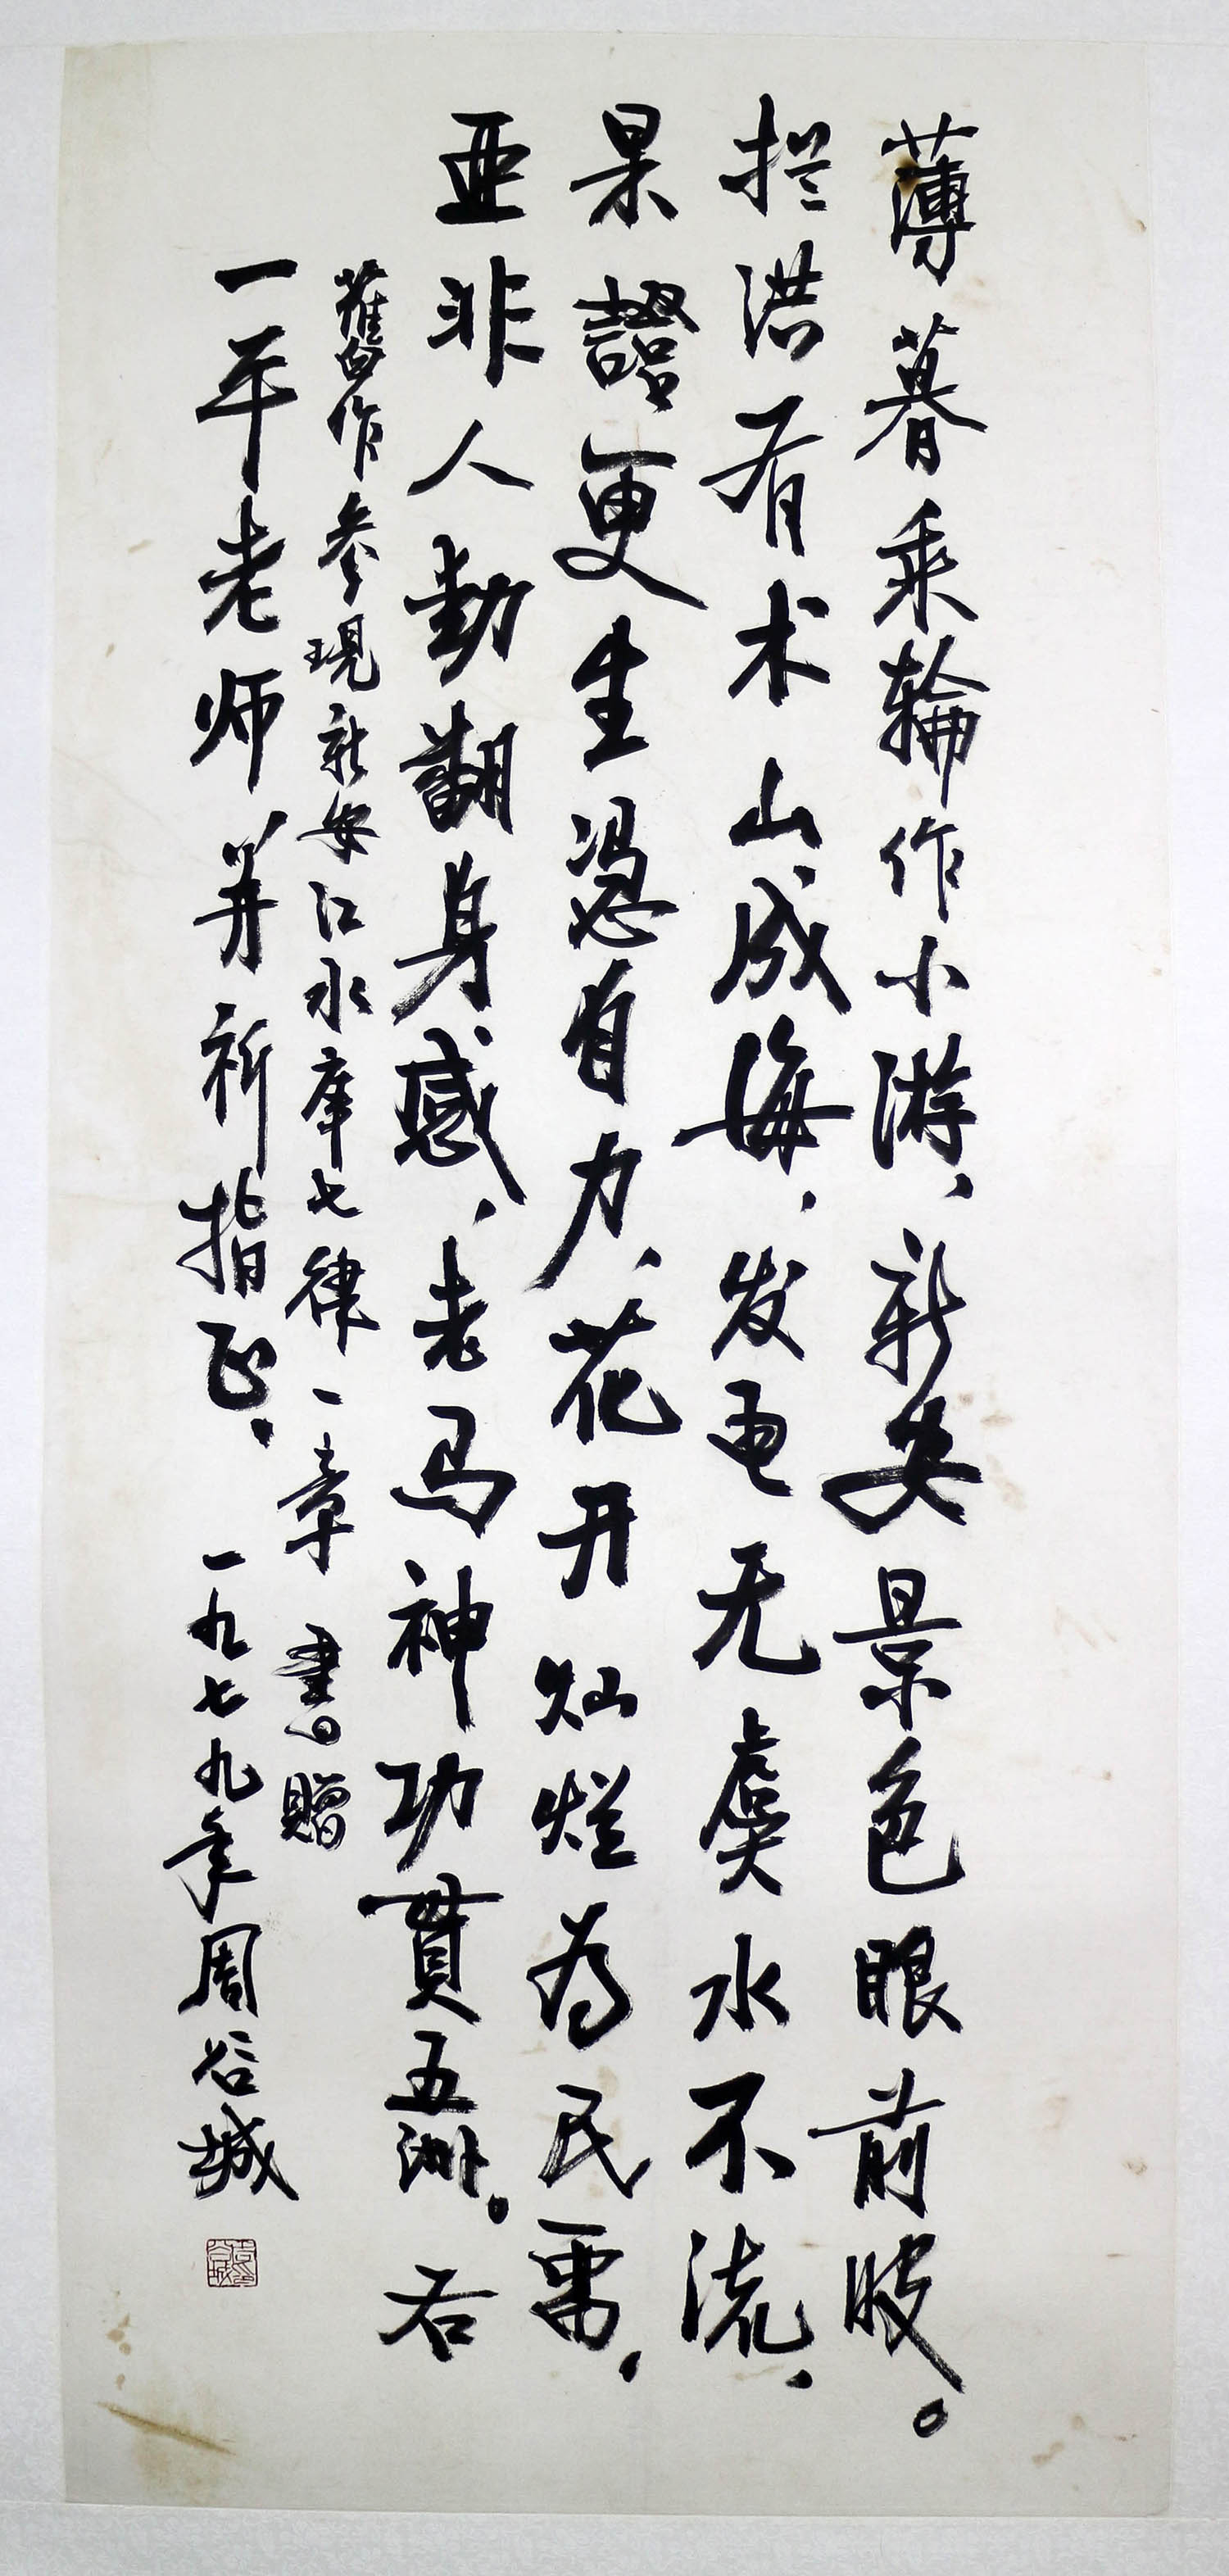 薄暮乘輪作小游、新安景色眼前收。
拦洪有术山成海、发电无虞水不流、
果證更生憑自力、花开灿烂为民需、
亚非人动翻身感、老马神功貫五洲。右
舊作参观新安江水库七律一章 書赠
一平老师并祈指正、一九七九年周谷城